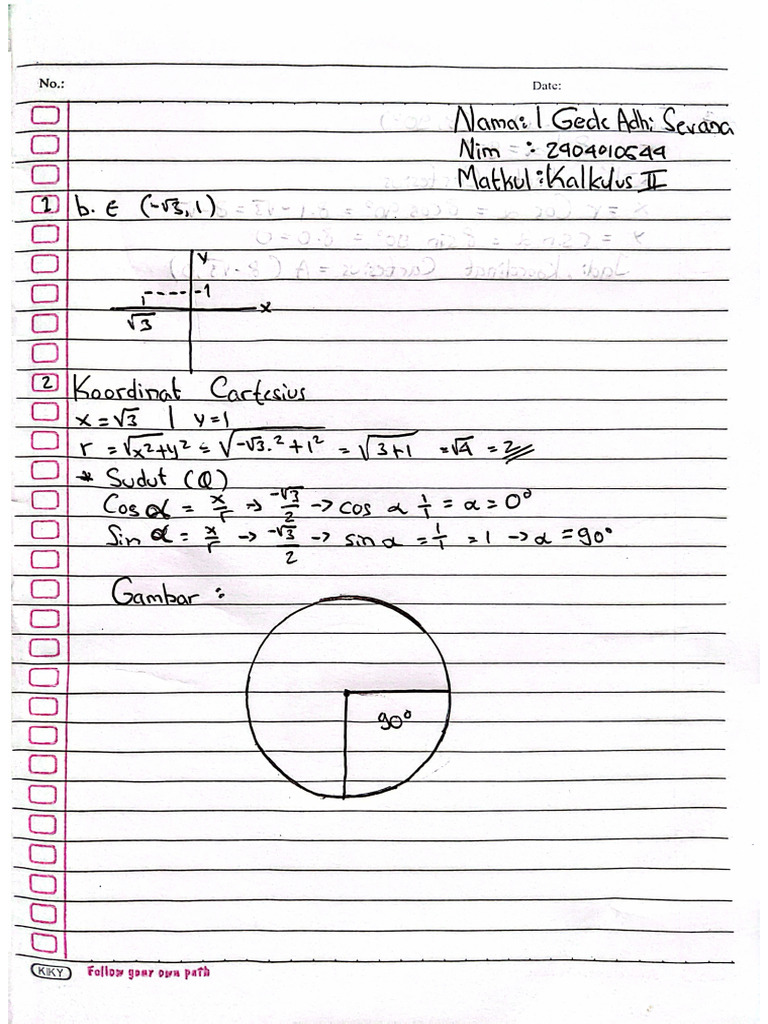 No.:
Date:
Nama: I Gede Adhi Sevana
Nim =: 2404010644
Matkul: Kalkulus II
1 b. E (-√3, 1)
y
-1
x
√3
2 Koordinat Cartesius
x = √3 | y = 1
r = √x²+y² = √-√3.²+1² = √3+1 = √4 = 2
* Sudut (Q)
Cos α = x/r → -√3/2 → cos α 1/1 = α = 0°
Sin α = x/r → -√3/2 → sin α = 1/1 = 1 → α = 90°
Gambar :
90°
KIKY Follow your own path